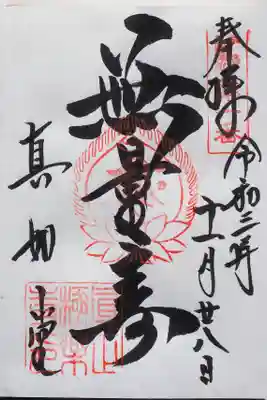 奉拝 令和三年
十一月廿八日
無量寿
真如堂
真正極楽